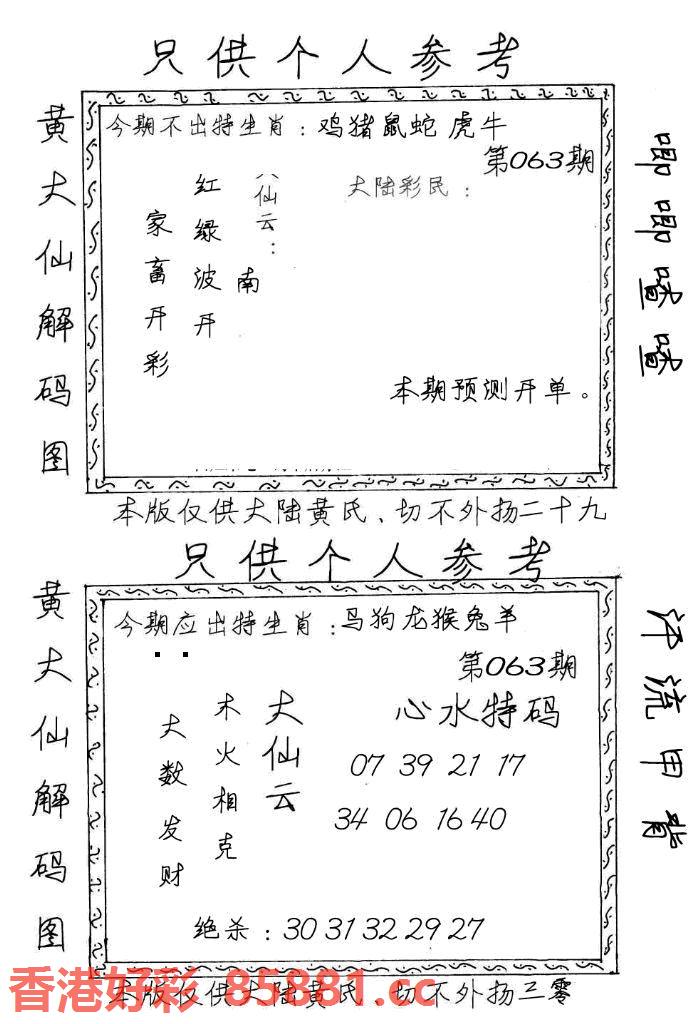 只供个人参考
黄大仙解码图
今期不出特生肖：鸡猪鼠蛇虎牛
第063期
大陆彩民：
八仙云：
南
红绿波开
家畜开彩
本期预测开单。
唧唧喳喳
本版仅供大陆黄氏、切不外扬二十九
只供个人参考
黄大仙解码图
今期应出特生肖：马狗龙猴兔羊
第063期
心水特码
07 39 21 17
34 06 16 40
大仙云
木火相克
大数发财
绝杀：30 31 32 29 27
汗流甲背
本版仅供大陆黄氏、切不外扬三零
香港好彩 85881.cc